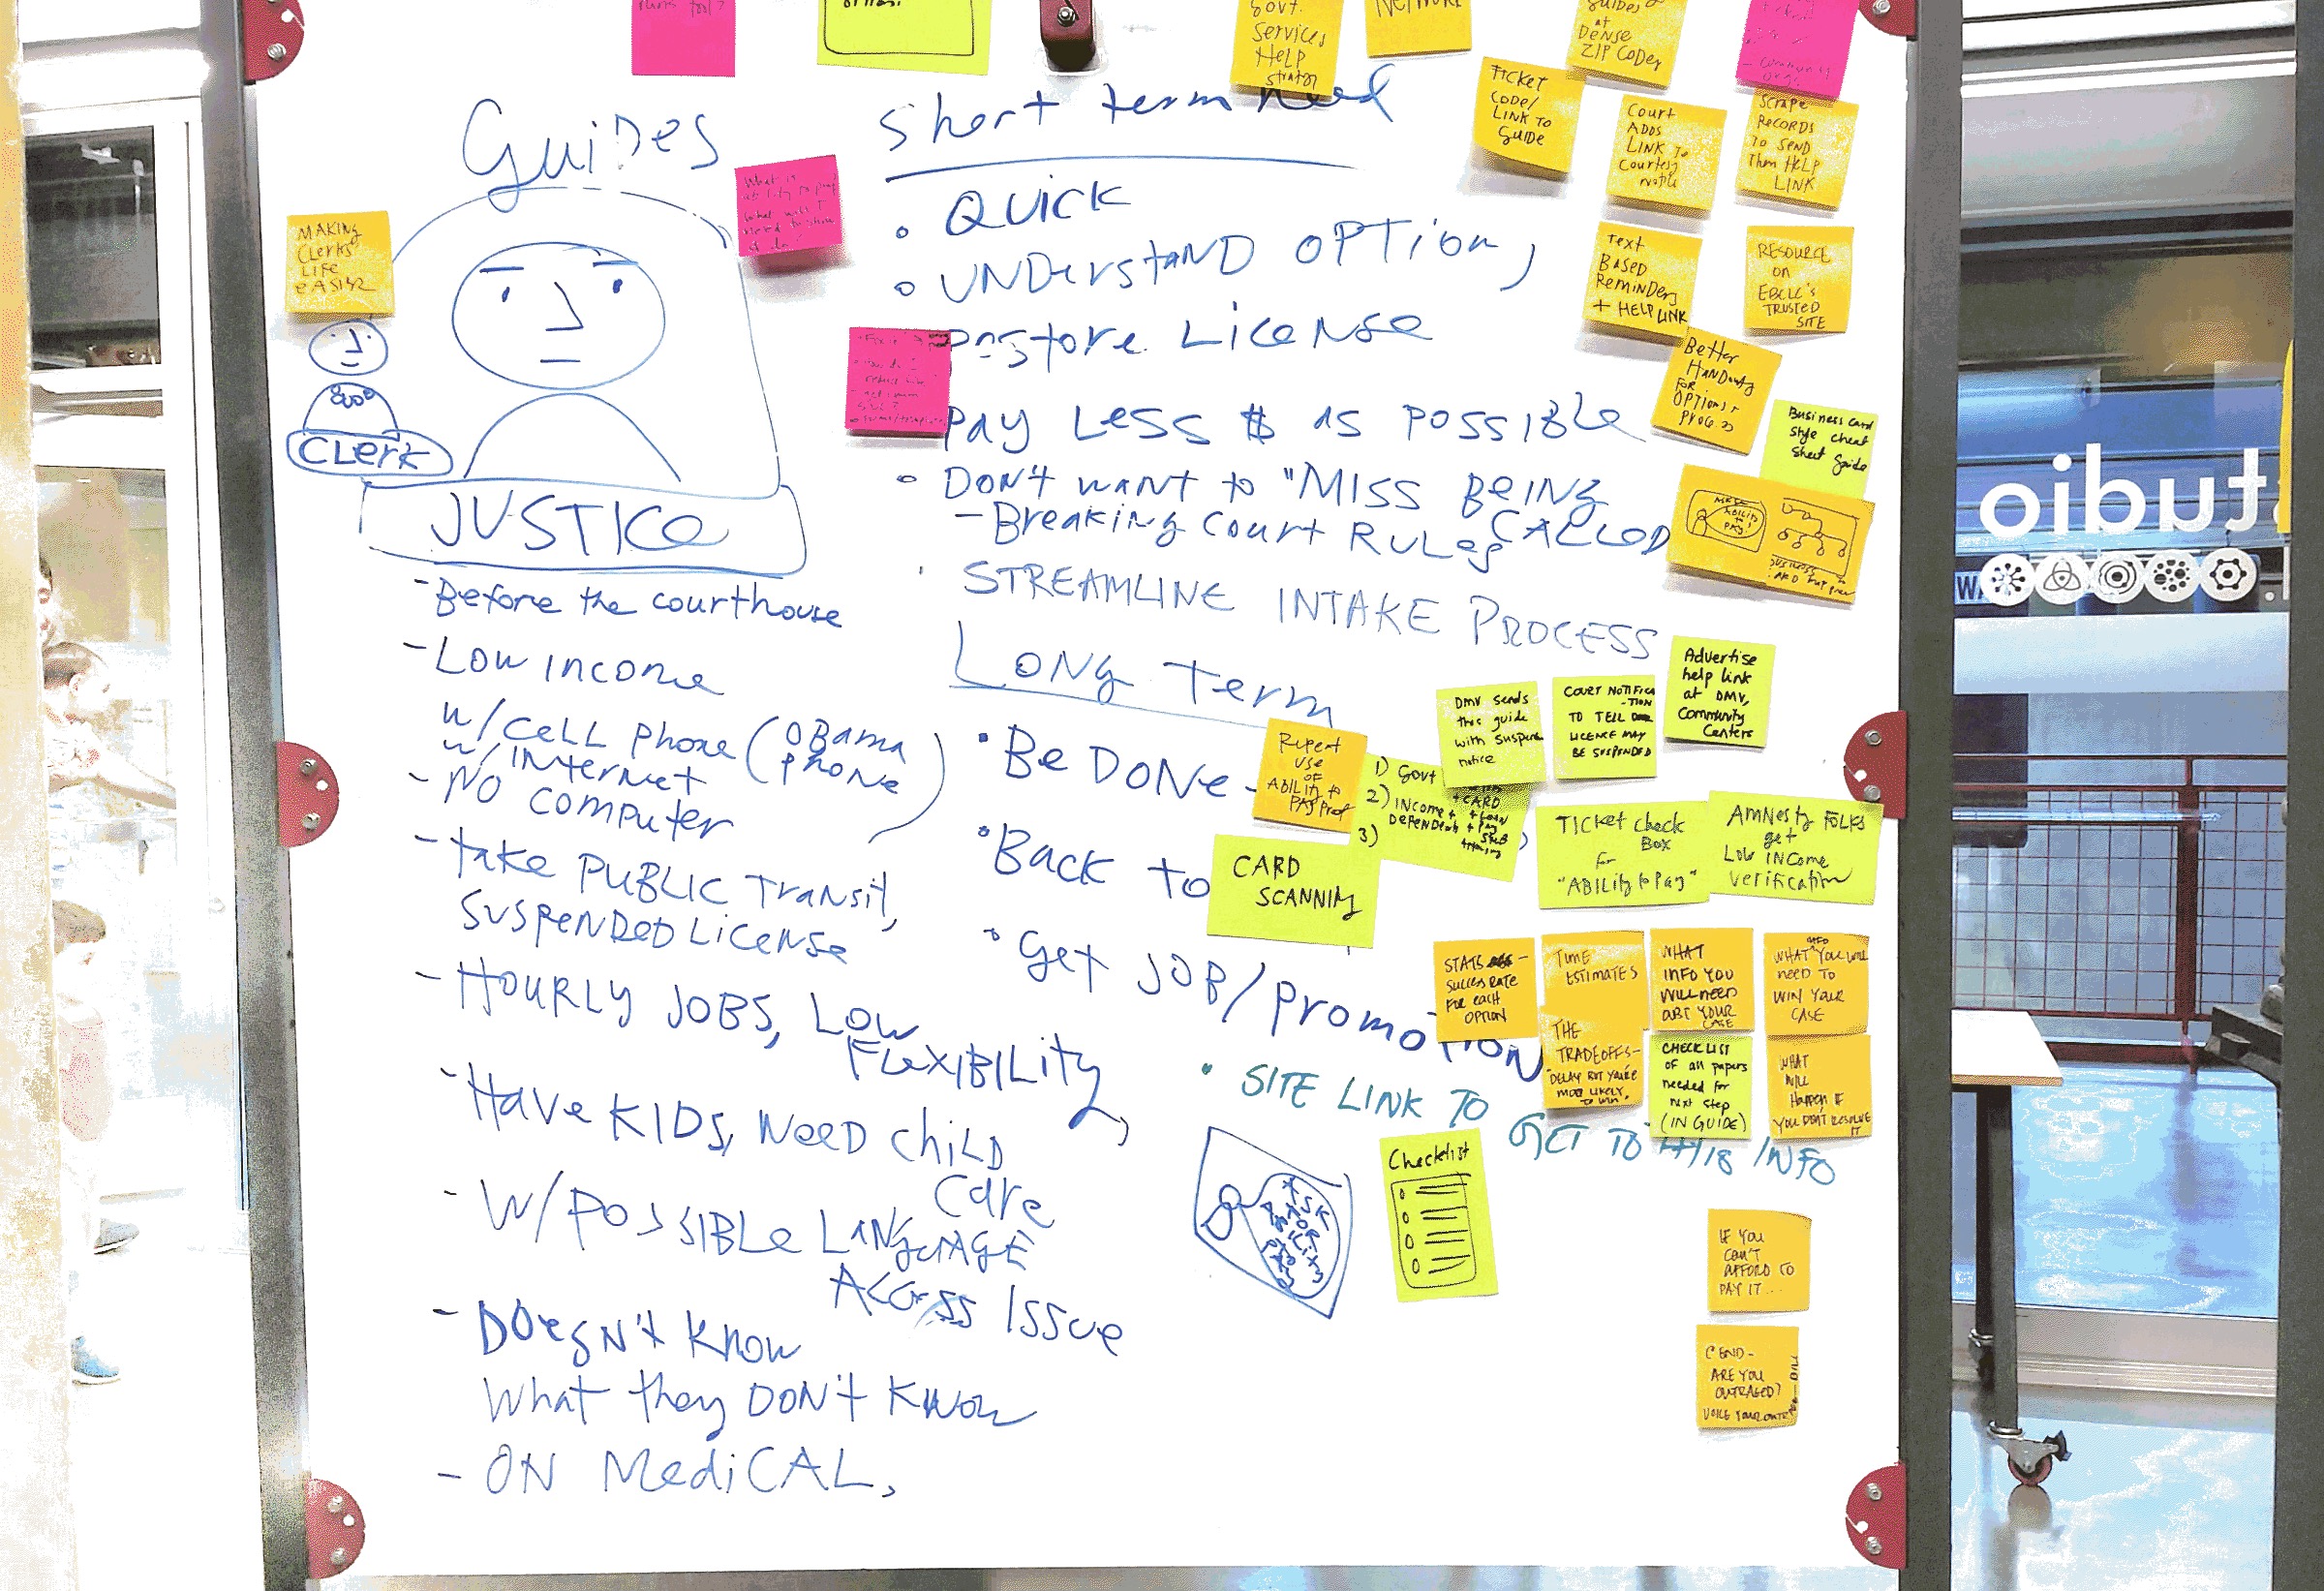 Guides
MAKING
CLERKS
LIFE
EASIER
CLERK
JUSTICE
- Before the courthouse
- Low income
w/ CELL phone (OBama
w/ INternet phone)
- NO computer
- take PUBLIC Transit,
SUSPENDED LICENSE
- HOURLY JOBS, LOW
FLEXIBILity,
- Have KIDS, NEED CHILD
care
- W/ POSSIBLE LANGUAGE
Access Issue
- Doesn't know
what they DON'T KNOW
- ON MediCAL,
What is
ability to pay
What will I
need to show
short term need
QUICK
UNDerstaND OPTions
restore License
PAY Less $ as possible
DON'T want to "MISS BEING
CALLED
- Breaking court RULes
STREAMLINE INTAKE PROCESS
LONg Term
Be DONe -
Back to
Get JOB/promotion
SITE LINK TO GET TO THIS INFO
Govt.
Services
Help
Network
Guides
at
Dense
ZIP CODES
- community
orgs
TICKET
CODE/
LINK TO
GUIDE
Court
ADDS
LINK TO
Courtesy
Notice
Scrape
RECORDS
TO SEND
Them HELP
LINK
Text
BASED
REMINDers
+ HELP LINK
RESOURCE
on
EBCLC's
TRUSTED
SITE
Better
HANDouts
FOR
OPTIONS +
PROCESS
Business card
style cheat
sheet guide
ABILITY
to
PAY
Advertise
help link
at DMV,
Community
Centers
DMV sends
this guide
with suspense
notice
COURT NOTIFICA
-TION
TO TELL
LICENCE MAY
BE SUSPENDED
Repeat
Use
of
ABILITY to
PAY Proof
1) Govt
2) INCOME +
DEPENDENT +
3)
+ CARD
+ LOAN
Pay
Stub
CARD
SCANNING
TICKET check
BOX
for
"ABILITY to Pay"
AMNESTY FOLKS
get
LOW INCOME
verification
STATS -
SUCCESS RATE
FOR EACH
OPTION
TIME
ESTIMATES
WHAT
INFO YOU
WILL NEED
ABT YOUR
CASE
WHAT INFO YOU WILL
NEED TO
WIN YOUR
CASE
THE
TRADEOFFS -
DELAY BUT YOU'RE
MORE LIKELY
TO WIN!
CHECKLIST
OF all papers
needed for
next step
(IN GUIDE)
WHAT
WILL
Happen IF
YOU DON'T RESOLVE
IT
ASK
FOR
ABILITY
Checklist
IF YOU
CAN'T
AFFORD TO
PAY IT...
C END -
ARE YOU
OUTRAGED?
VOICE YOUR
studio